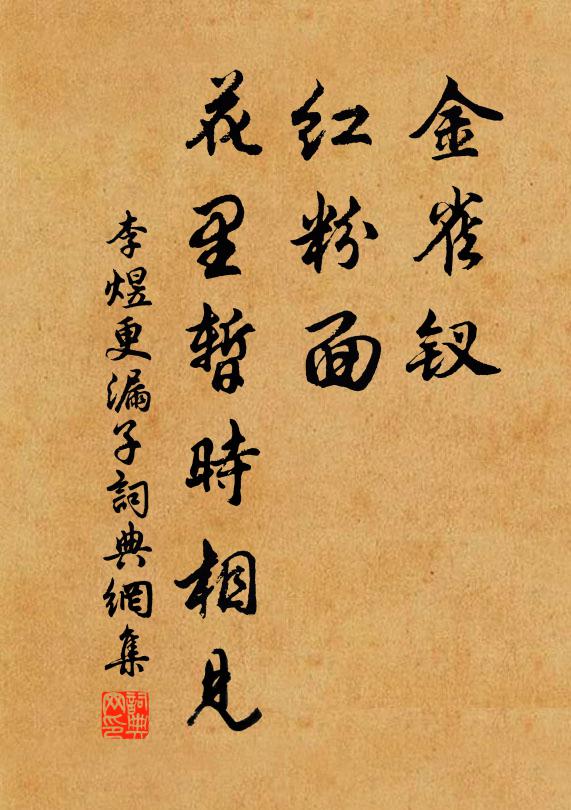 金雀钗
红粉面
花里暫時相見
李煜更漏子詞典網集
詞典网印